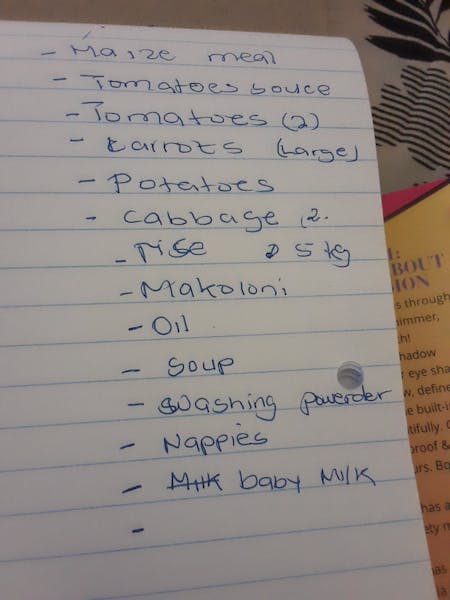 - Maize meal
- Tomatoes souce
- Tomatoes (2)
- Carrots (Large)
- Potatoes
- Cabbage 2.
- rise 5 kg
- Makoloni
- Oil
- Soup
- Washing powerder
- Nappies
- Milk baby Milk
-
BOUT
ION
s through
immer,
h!
hadow
eye sha
w, define
e built-i
tifully.
proof &
urs. Bo
has a
ety m